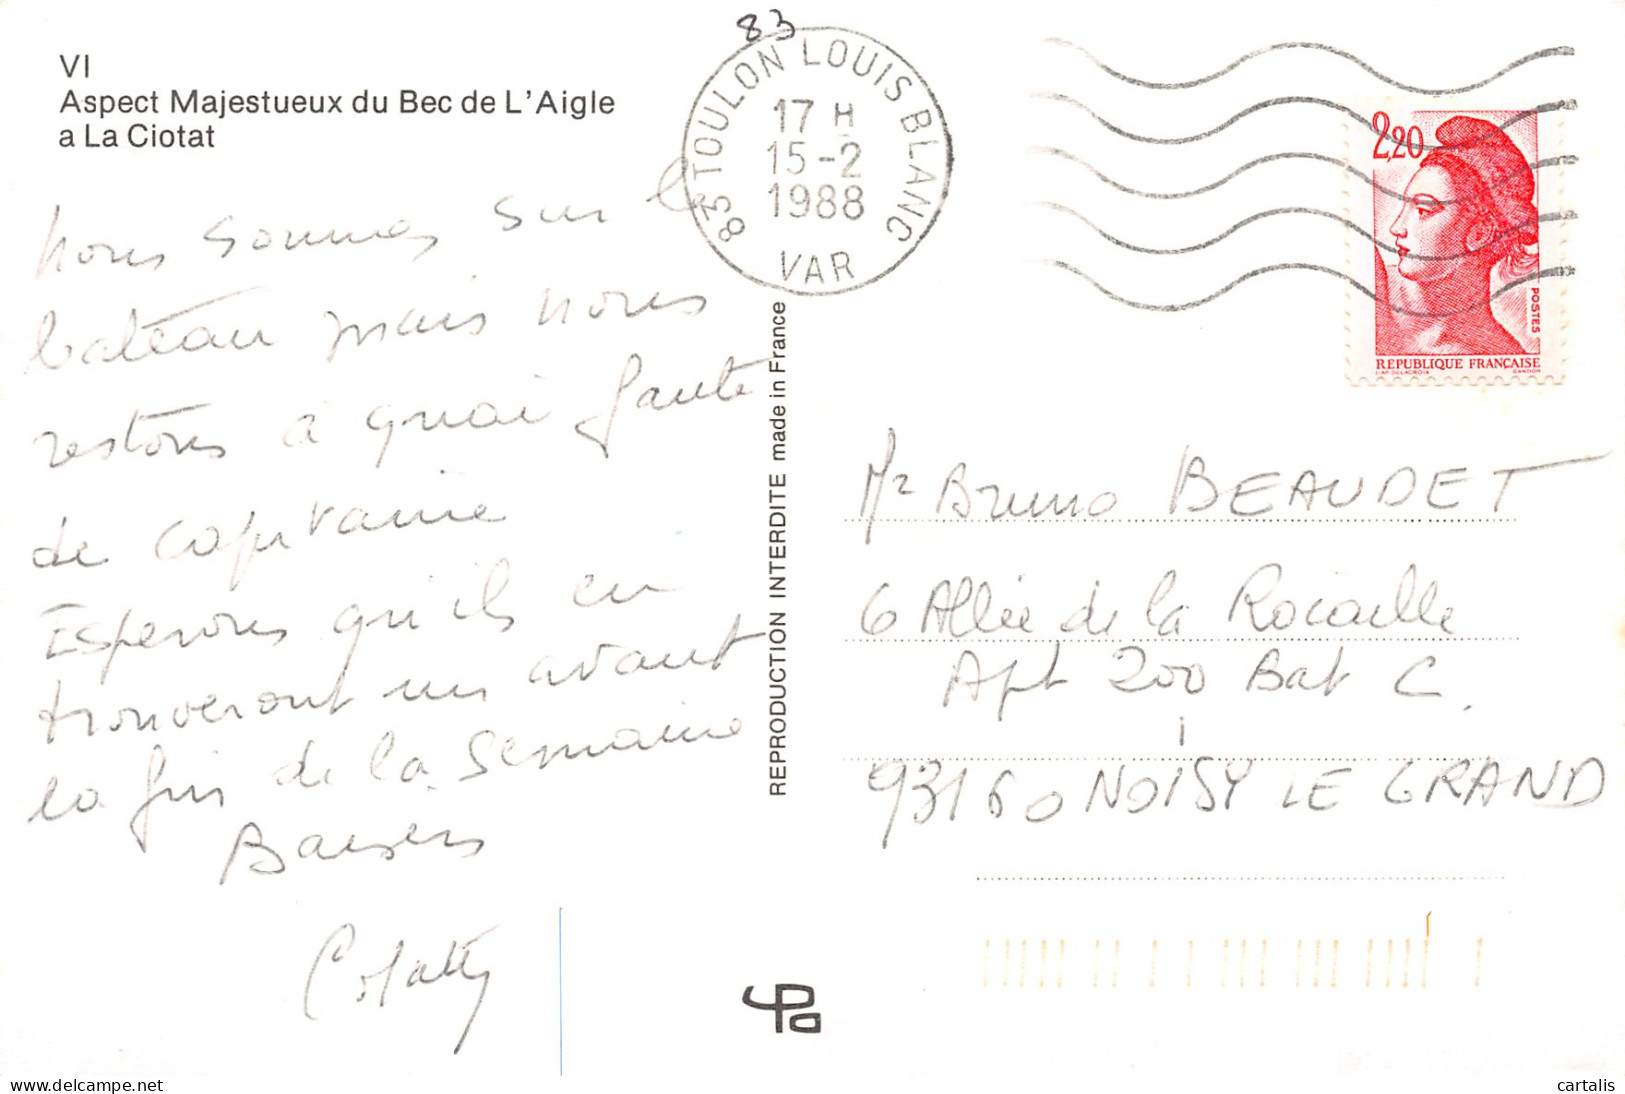 83
VI
Aspect Majestueux du Bec de L'Aigle
a La Ciotat
83 TOULON LOUIS BLANC
17 H
15-2
1988
VAR
2,20
POSTES
REPUBLIQUE FRANÇAISE
LIAP DELACROIX GANDON
Nous sommes sur le
bateau mais nous
restons à quai faute
de capitaine
Esperons qu'ils en
trouveront un avant
la fin de la semaine
Baisers
REPRODUCTION INTERDITE made in France
Mr Bruno BEAUDET
6 Allée de la Rocaille
Apt 200 Bat C.
93160 NOISY LE GRAND
delcampe.net
cartalis